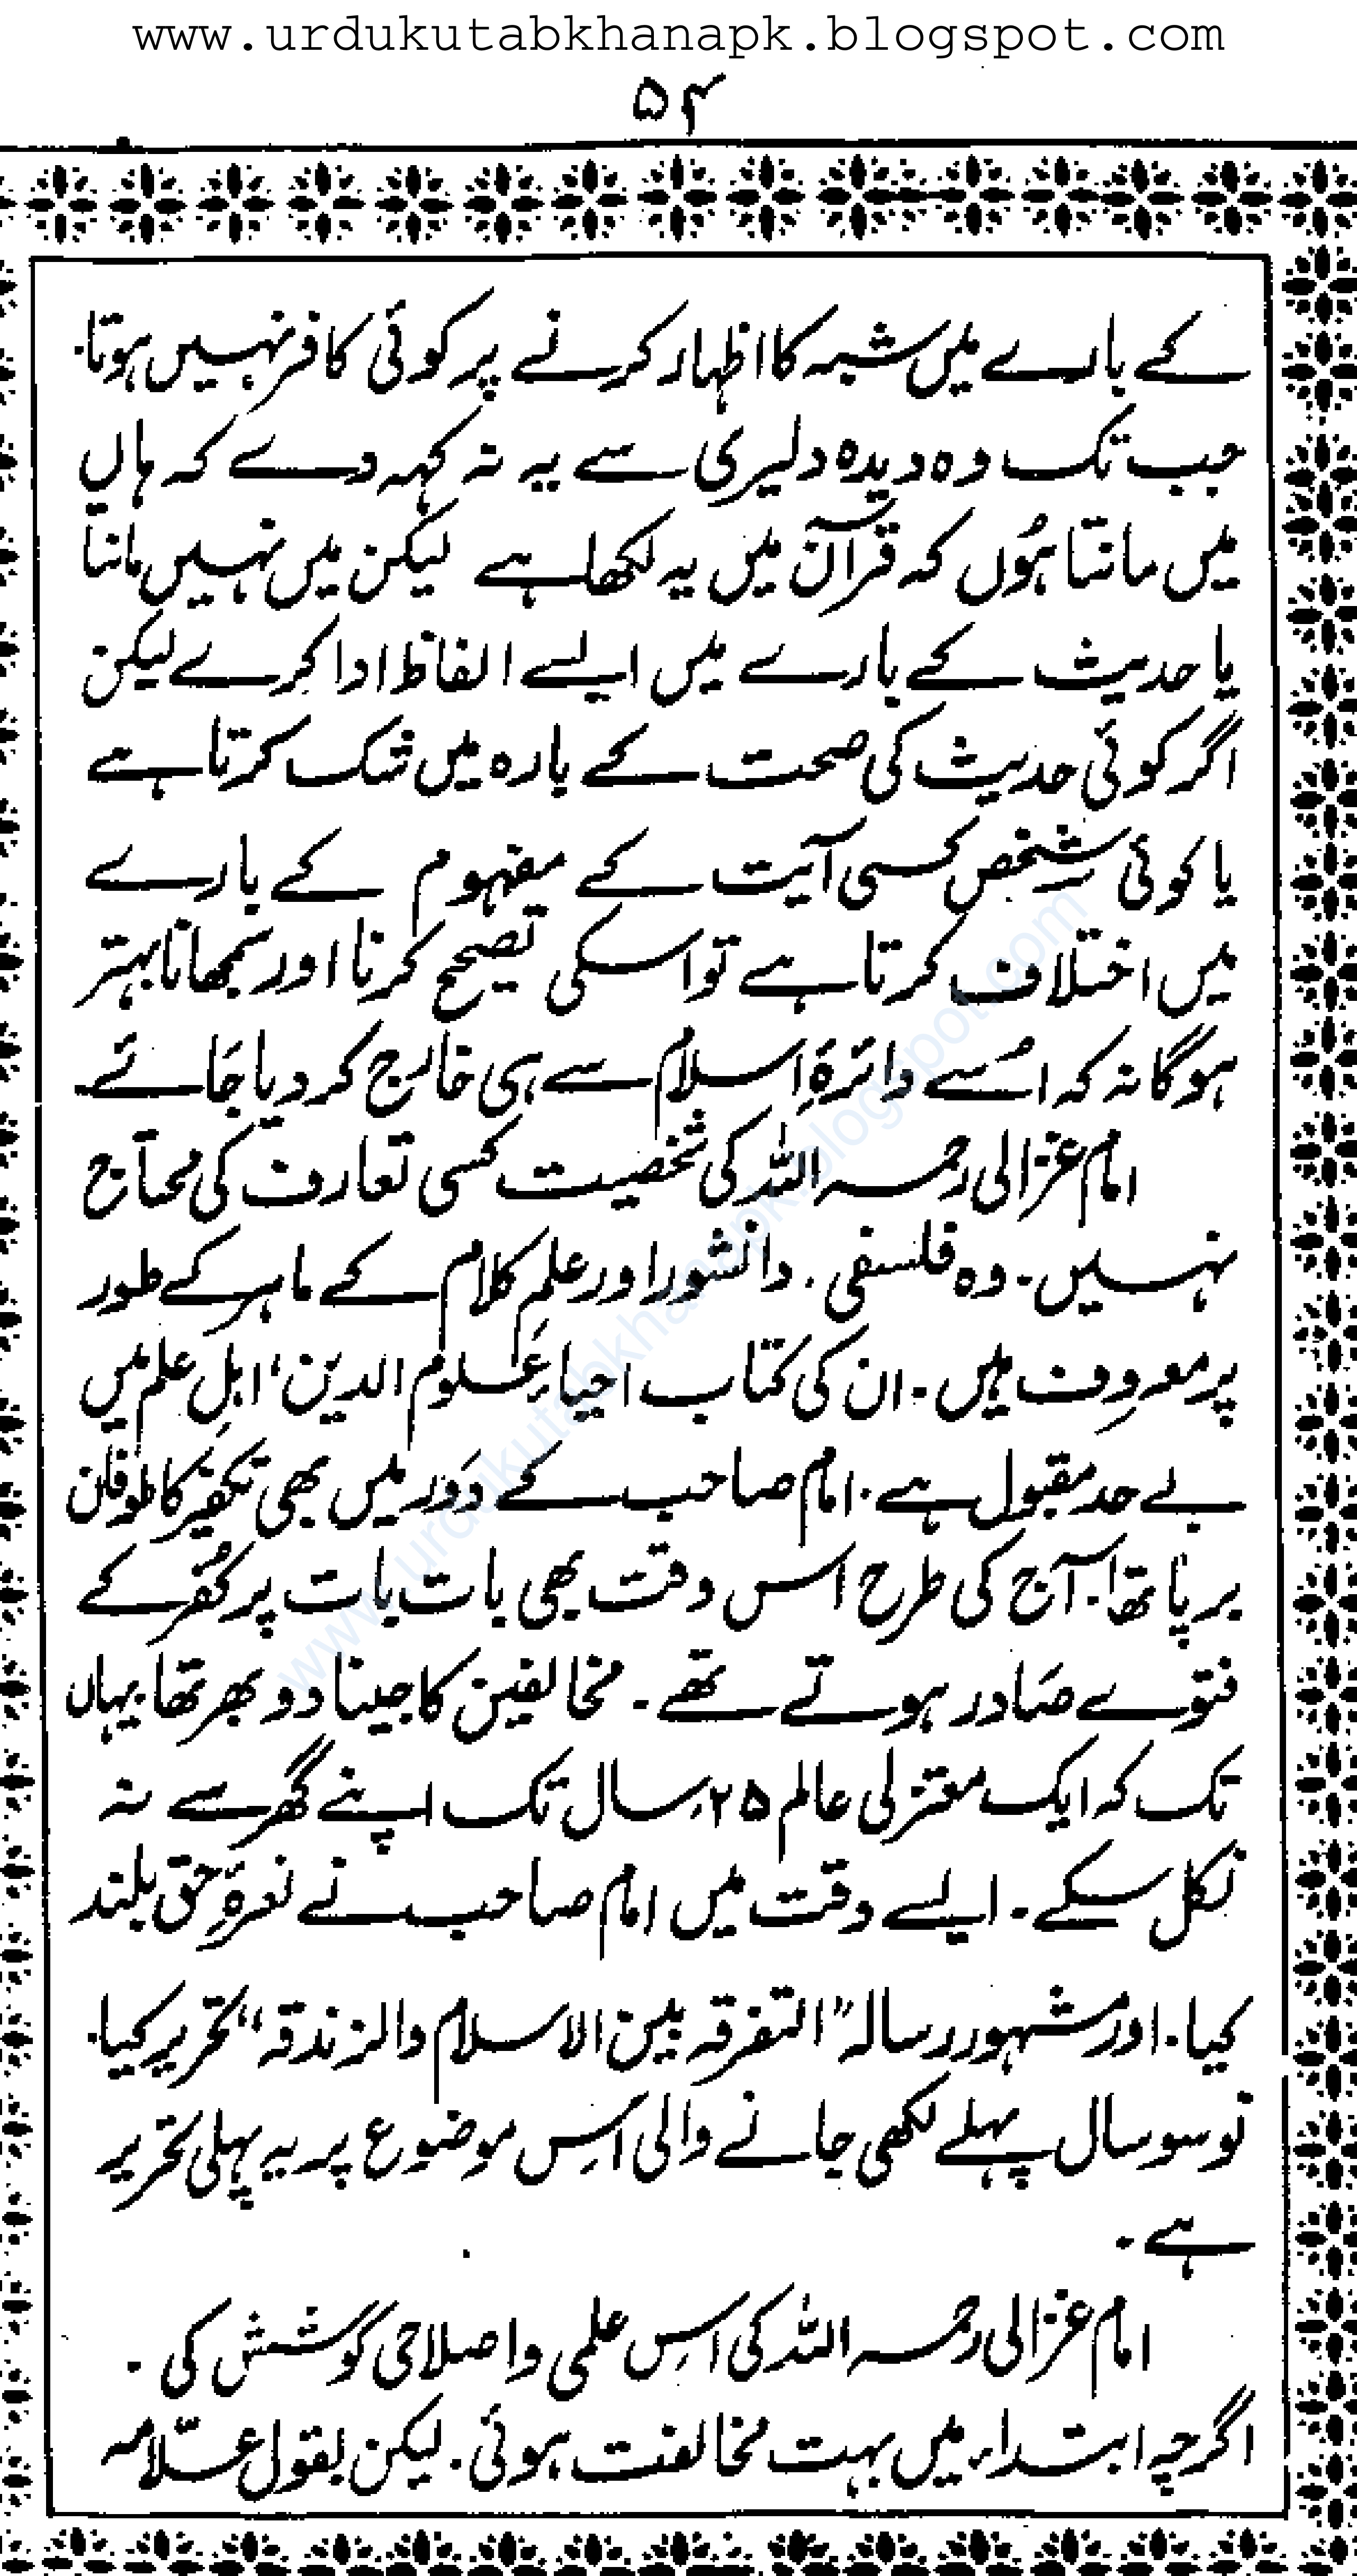 www.urdukutabkhanapk.blogspot.com
۵۴
کے بارے میں شبہ کا اظہار کرنے پر کوئی کافر نہیں ہوتا۔
جب تک وہ دیدہ دلیری سے یہ نہ کہہ دے کہ ہاں
میں مانتا ہُوں کہ قرآن میں یہ لکھا ہے لیکن میں نہیں مانتا
یا حدیث کے بارے میں ایسے الفاظ ادا کرے لیکن
اگر کوئی حدیث کی صحت کے بارہ میں شک کرتا ہے
یا کوئی شخص کسی آیت کے مفہوم کے بارے
میں اختلاف کرتا ہے تو اسکی تصحیح کرنا اور سمجھانا بہتر
ہوگا نہ کہ اسُے دائرۂِ اسلام سے ہی خارج کر دیا جَائے۔
امام غزالی رحمہ اللہ کی شخصیت کسی تعارف کی محتاج
نہیں۔ وہ فلسفی۔ دانشور اور علمِ کلام کے ماہر کے طور
پر معروف ہیں۔ ان کی کتاب احیاء عُلوم الدین، اہلِ علم میں
بے حد مقبول ہے۔ امام صاحب کے دَور میں بھی تکفیر کا طوفان
برپا تھا۔ آج کی طرح اس وقت بھی بات بات پر کُفر کے
فتوے صَادر ہوتے تھے۔ مخالفین کا جینا دو بھر تھا۔ یہاں
تک کہ ایک معتزلی عالم ۲۵ سال تک اپنے گھر سے نہ
نکل سکے۔ ایسے وقت میں امام صاحب نے نعرۂِ حق بلند
کیا۔ اور مشہور رسالہ "التفرقہ بین الاسلام والزندقہ" تحریر کیا۔
نو سو سال پہلے لکھی جانے والی اسِ موضوع پر یہ پہلی تحریر
ہے۔
امام غزالی رحمہ اللہ کی اسِ علمی و اصلاحی کوشش کی۔
اگرچہ ابتداء میں بہت مخالفت ہوئی۔ لیکن بقول علّامہ
www.urdukutabkhanapk.blogspot.com